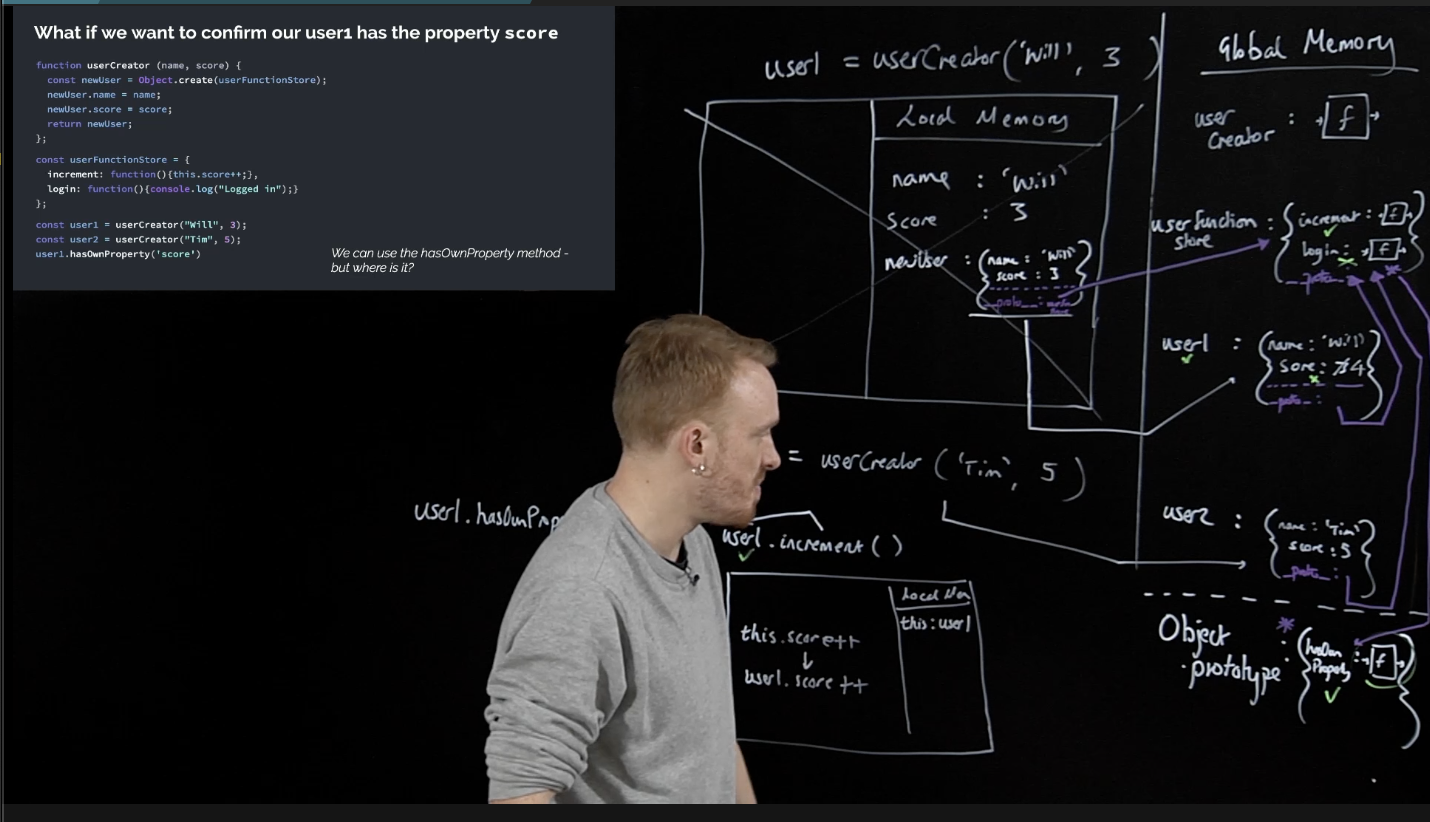 What if we want to confirm our user1 has the property score
function userCreator (name, score) {
const newUser = Object.create(userFunctionStore);
newUser.name = name;
newUser.score = score;
return newUser;
};
const userFunctionStore = {
increment: function(){this.score++;},
login: function(){console.log("Logged in");}
};
const user1 = userCreator("Will", 3);
const user2 = userCreator("Tim", 5);
user1.hasOwnProperty('score')
We can use the hasOwnProperty method -
but where is it?
user1 = userCreator('Will', 3)
Local Memory
name : 'Will'
Score : 3
newUser : {name : 'Will'
score : 3
__proto__:
}
= userCreator ('Tim', 5)
user1.hasOwnProp
user1.increment()
Local Mem
this : user1
this.score++
↓
user1.score++
Global Memory
user
Creator : →[f]→
userfunction
store : {increment : →[f]→
login : →[f]→
__proto__
}
user1 : {name : 'Will'
Sore : 4
__proto__ :
}
user2 : {name : 'Tim'
score : 5
__proto__ :
}
Object
prototype : {hasOwn
Property : →[f]→
}